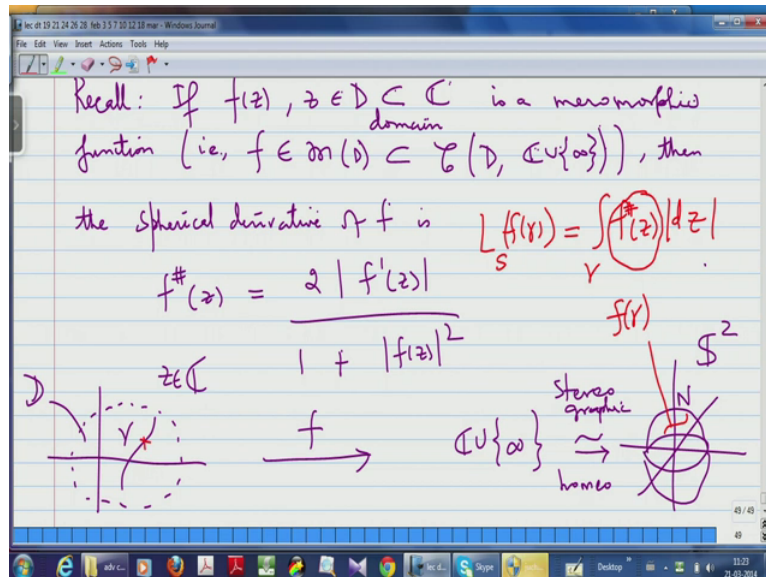 lec dt 19 21 24 26 28 feb 3 5 7 10 12 18 mar - Windows Journal
File Edit View Insert Actions Tools Help
Recall: If f(z), z ∈ D ⊂ ℂ is a meromorphic
domain
function (i.e., f ∈ 𝔐(D) ⊂ 𝒞(D, ℂ∪{∞})), then
the spherical derivative of f is L_S(f(γ)) = ∫_γ f^#(z) |dz|
f^#(z) = 2 |f'(z)| / 1 + |f(z)|^2
z ∈ ℂ
f(γ)
$^2
D
γ
f
ℂ∪{∞}
stereo
graphic
≃
homeo
N
49/49
49
adv c...
lec d...
Skype
Desktop
11:23
21-03-2014